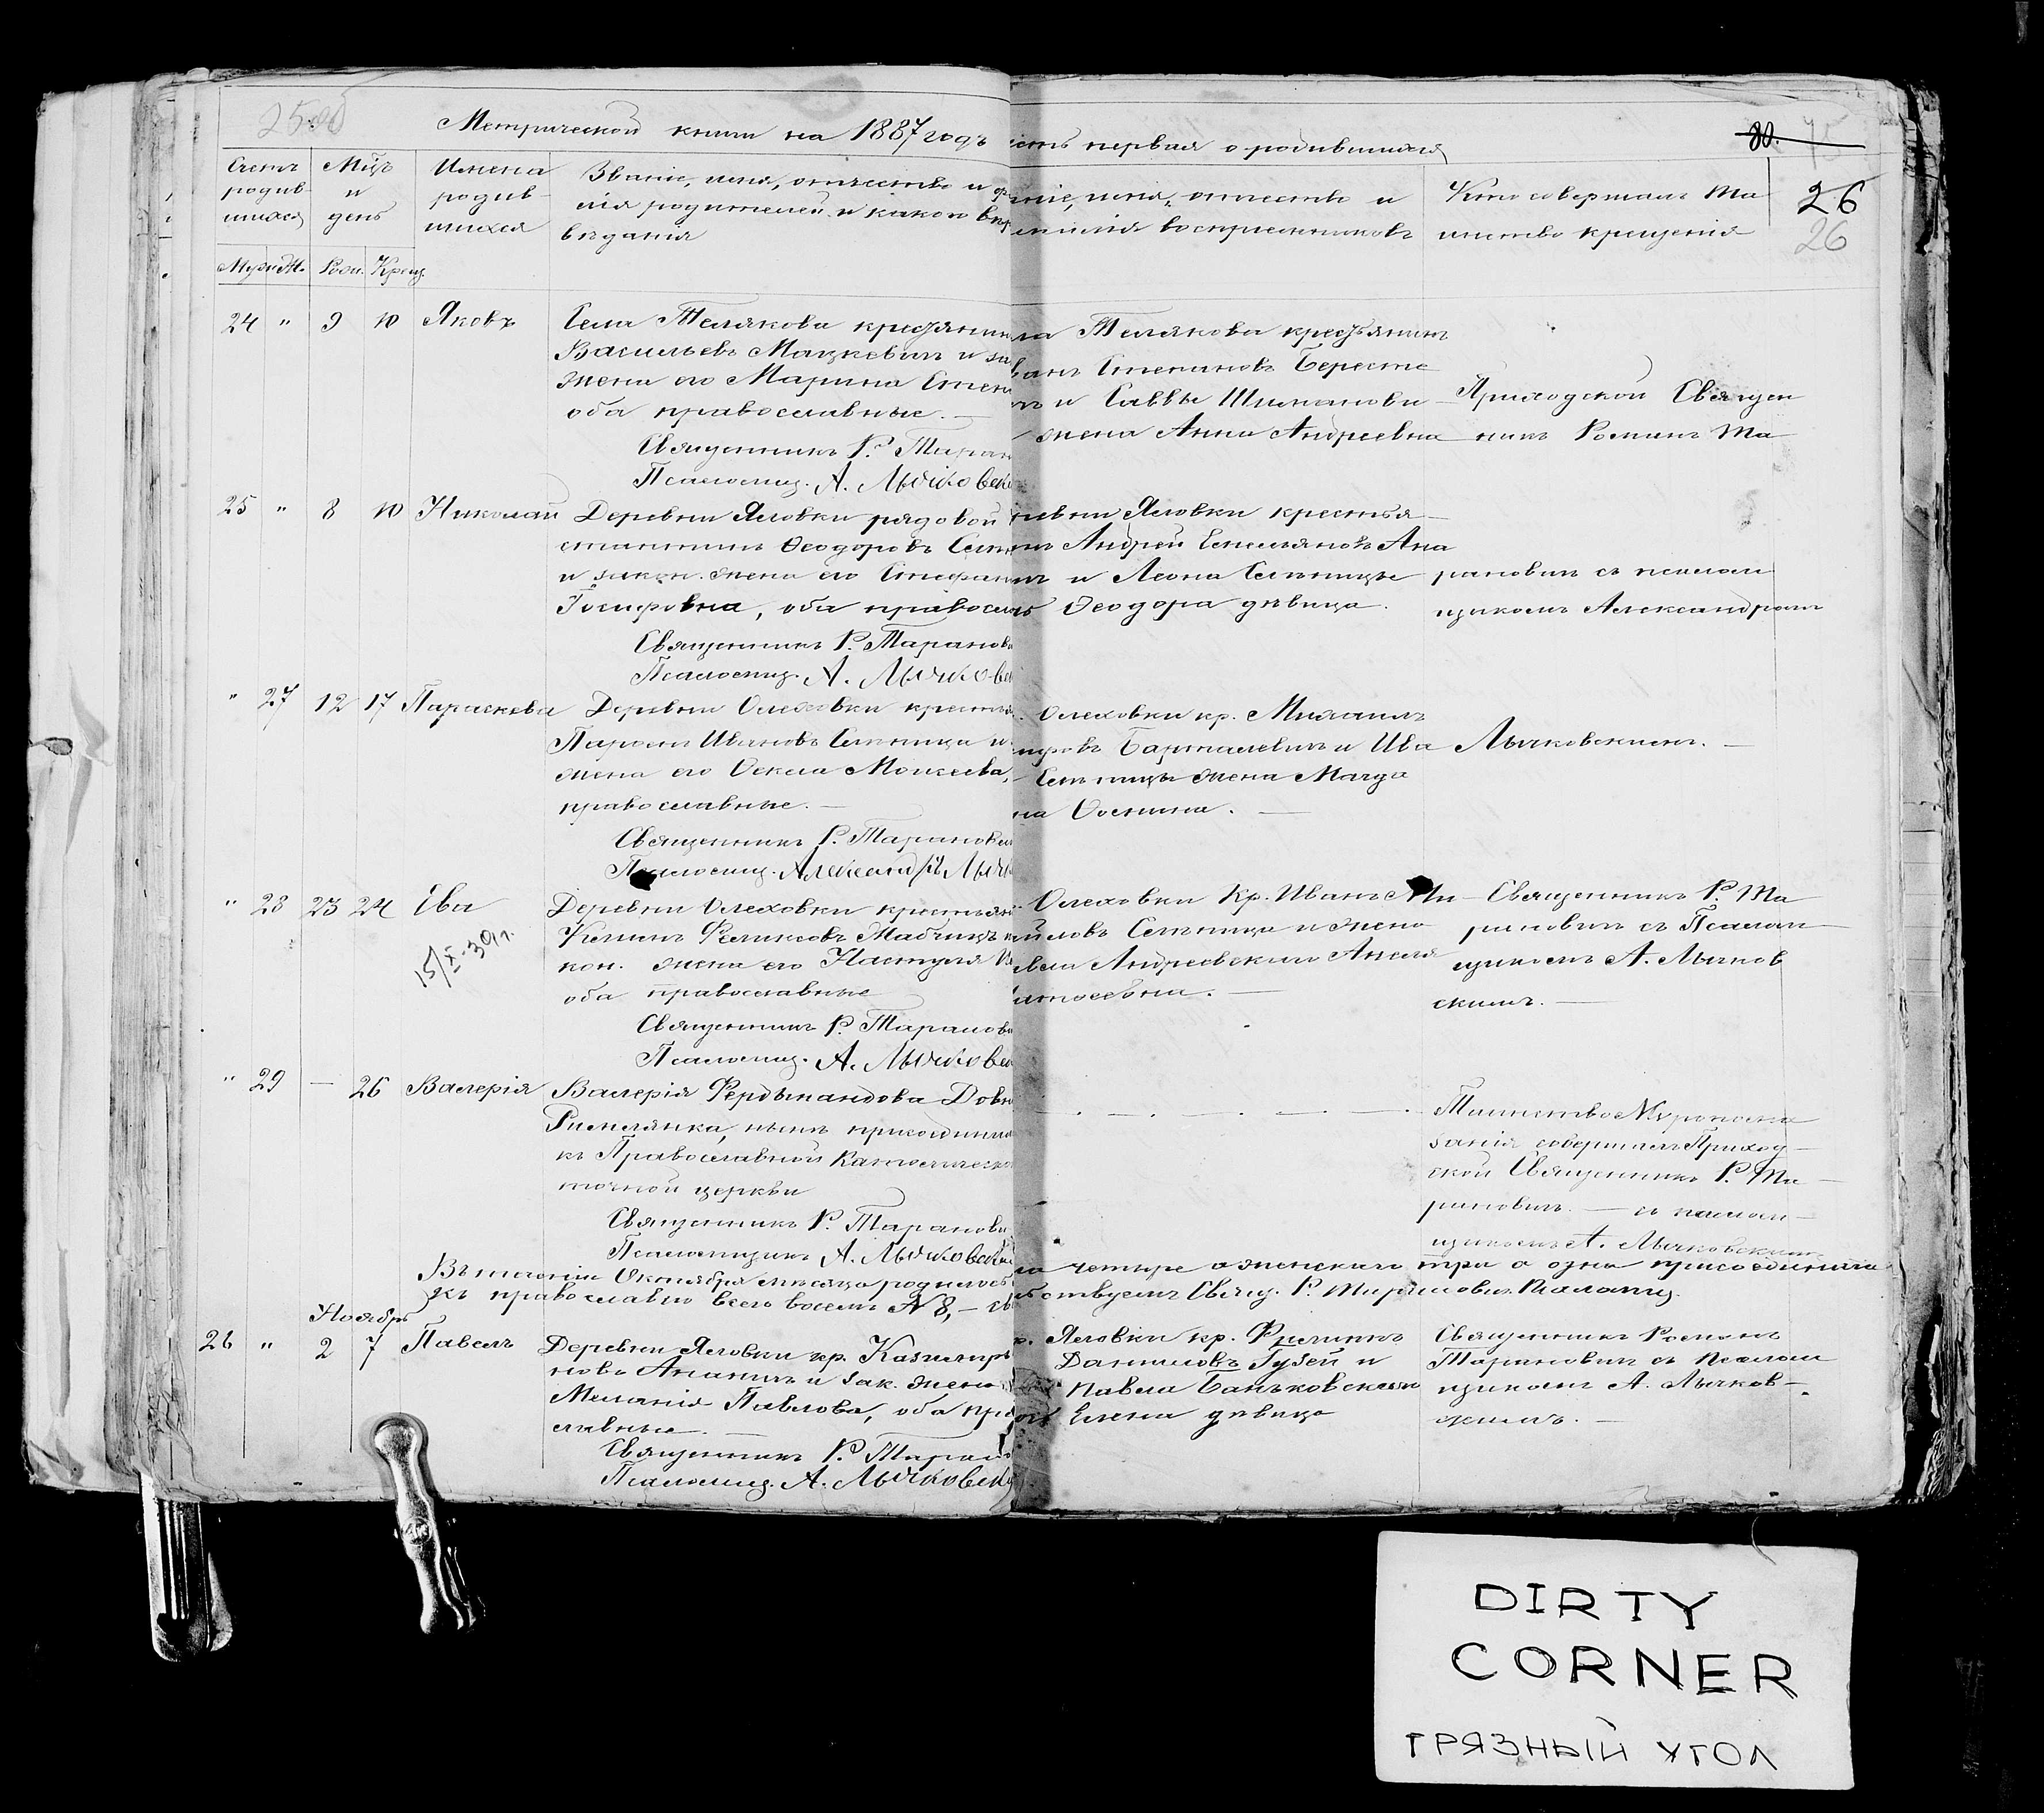 Метрической книги на 1887 годъ
сть первая о родившихся
80.
26
26
Счетъ родив- шихся
Мцъ и день
Имена родив- шихся
Званіе, имя, отчество и
лія родителей и какого
вѣданія
ніе, имя, отчество и
милія воспріемниковъ
Кто совершалъ Та
инство крещенія
Муж. Ж. Род. Крещ.
24 " 9 10 Яковъ
Села Телякова крестьянин
Васильевъ Мацкевич и за
жена его Марина Степа
оба православные. —
Священникъ Р. Таран
Псаломщ. А. Лычковск
ла Телякова крестьянинъ
ванъ Степановъ Бересте
и Саввы
жена Анна Андреевна
Приходской Священ
никъ Романъ Та
25 " 8 10 Николай
Деревни Яловки рядовой
стантинъ Ѳеодоровъ
и закон. жена его Стефан
Іосифовна, оба православ
Священникъ Р. Таранови
Псаломщ. А. Лычковск
ревни Яловки крестья-
нъ Андрей Емельяновъ Ана
и Леона
Ѳеодора дѣвица.
рановичъ съ псалом
щикомъ Александромъ
" 27 12 17 Параскева
Деревни Олеховки крестья
Иванов
жена его Моисеева,
православные. —
Священникъ Р. Таранович
Псаломщ. Александръ Лычк
Олеховки кр. Михаилъ
Барталевичъ и Ива
жена Магда
на Осипина. —
Лычковскимъ. —
" 28 23 24 Ева
15/X-39г.
Деревни Олеховки крестьян
Феликсовъ
кон. жена его Настуля
оба православные
Священникъ Р. Таранови
Псаломщ. А. Лычковск
Олеховки Кр. Иванъ Ми
йловъ и жена
Андреевскаго Анеля
—
Священникъ Р. Та
рановичъ съ Псалом
щикомъ А. Лычков
скимъ. —
" 29 — 26 Валерія
Валерія Фердынандова
Римлянка, нынѣ присоедини
къ Православной Католическо
точной церкви
Священникъ Р. Таранови
Псаломщикъ А. Лычковски
Таинство Мѵропома
занія совершалъ Приход-
ской Священникъ Р. Та-
рановичъ. — съ псалом-
щикомъ А. Лычковскимъ
Въ теченіи Октября мѣсяца родилось
ла четыре а женскаго три а одна присоединила
къ православію всего восемь № 8, —
ствуемъ Свящ. Р. Тарановичъ Псаломщ.
Ноябрь
26 " 2 7 Павелъ
Деревни Яловки кр. Казимиръ
новъ Ананичъ и зак. жена
Меланія Павлова, оба пра
славные —
Священникъ Р. Таранов
Псаломщ. А. Лычковск
Яловки кр.
Даниловъ Гузей и
Павла Баньковскаго
Елена дѣвица
Священникъ Романъ
Тарановичъ съ псалом
щикомъ А. Лычков-
скимъ. —
DIRTY
CORNER
ГРЯЗНЫЙ УГОЛ